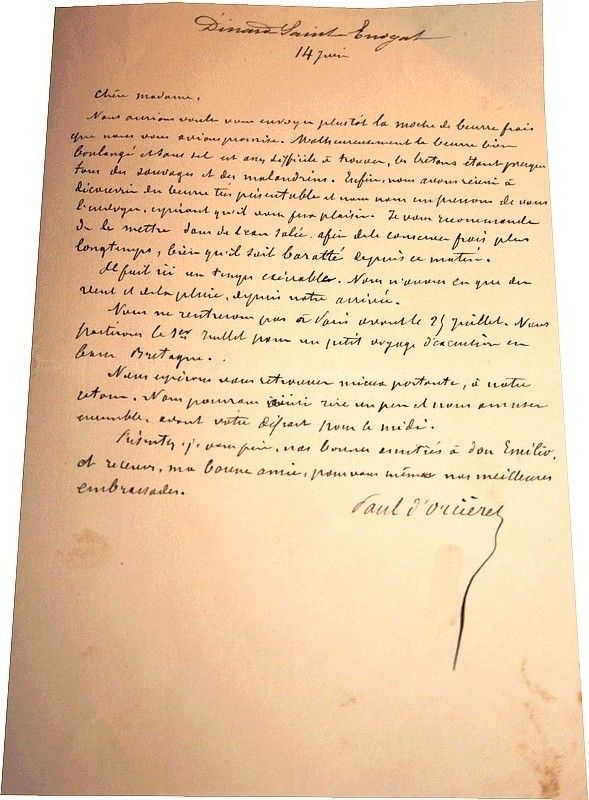 Dinard Saint Enogat
14 juin
Chère madame,
Nous aurions voulu vous envoyer plustôt la moche de beurre frais
que nous vous avions promise. Malheureusement le beurre bien
boulangé et sans sel est assez difficile à trouver, les bretons étant presque
tous des sauvages et des malandrins. Enfin, nous avons réussi à
découvrir du beurre très présentable et nous nous empressons de vous
l'envoyer, espérant qu'il vous fera plaisir. Je vous recommande
de le mettre dans de l'eau salée afin de le conserver frais plus
longtemps, bien qu'il soit baratté depuis ce matin.
Il fait ici un temps exécrable. Nous n'avons eu que du
vent et de la pluie, depuis notre arrivée.
Nous ne rentrerons pas à Paris avant le 25 juillet. Nous
partirons le 1er Juillet pour un petit voyage d'excursion en
basse Bretagne.
Nous espérons vous retrouver mieux portante, à notre
retour. Nous pourrons ainsi rire un peu et nous amuser
ensemble, avant votre départ pour le midi.
Présentez, je vous prie, nos bonnes amitiés à don Emilio,
et recevez, ma bonne amie, pour vous même nos meilleures
embrassades.
Paul d'